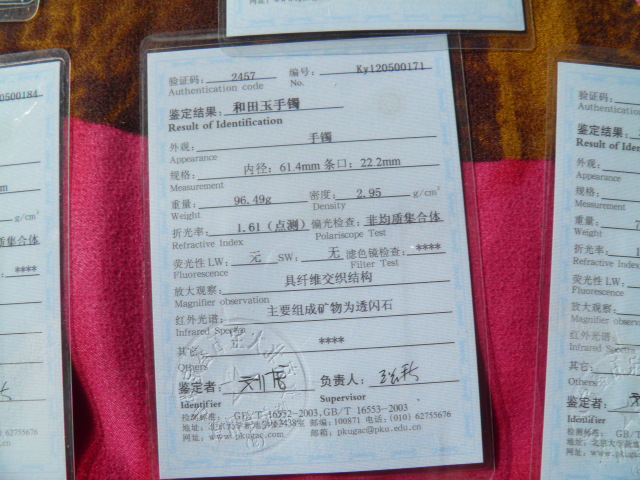 验证码: 2457 编号: Ky120500171
Authentication code No.
鉴定结果: 和田玉手镯
Result of Identification
外观: 手镯
Appearance
规格: 内径: 61.4mm 条口: 22.2mm
Measurement
重量: 96.49g 密度: 2.95
Weight Density
折光率: 1.61 (点测) 偏光检查: 非均质集合体
Refractive Index Polariscope Test
荧光性 LW: 元 SW: 无 滤色镜检查: ****
Fluorescence Filter Test
放大观察: 具纤维交织结构
Magnifier observation
红外光谱: 主要组成矿物为透闪石
Infrared Spectra
其它: ****
Others
鉴定者: 负责人:
Identifier Supervisor
检测标准: GB/T 16552-2003, GB/T 16553-2003
地址: 2438室 邮编: 100871 电话: (010) 62755676
网址: www.pkugac.com 邮箱: pkugac@pku.edu.cn
0500184
g/cm³
质集合体
****
62755676
验证码:
Authentication
鉴定结果:
Result of Iden
外观:
Appearance
规格:
Measurement
重量: 7
Weight
折光率: 1
Refractive Index
荧光性 LW:
Fluorescence
放大观察:
Magnifier obser
红外光谱:
Infrared Spec
其它:
Others
鉴定者:
Identifier
检测标准: GB/T
地址: 北京大学
网址: www.pku